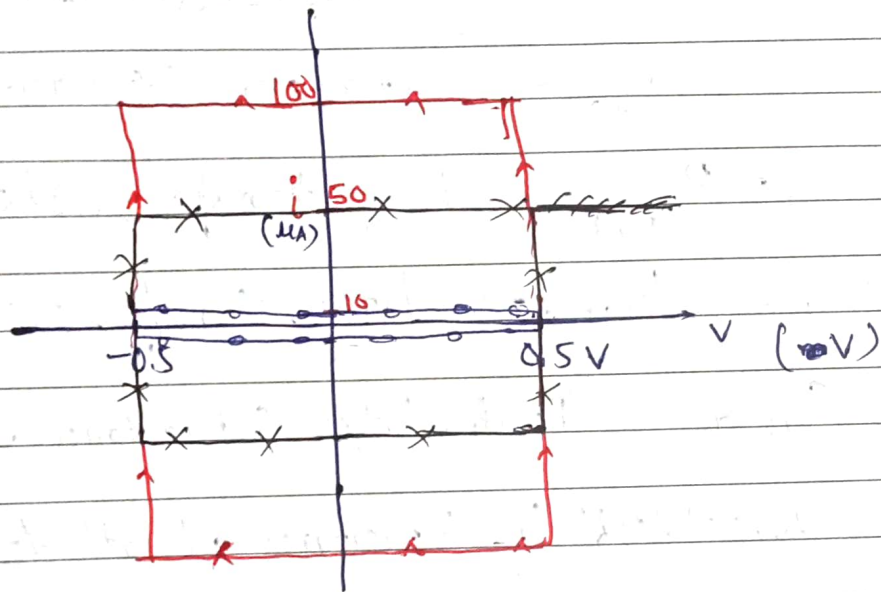 100
i 50
(μA)
10
-0.5 0.5 V V (V)